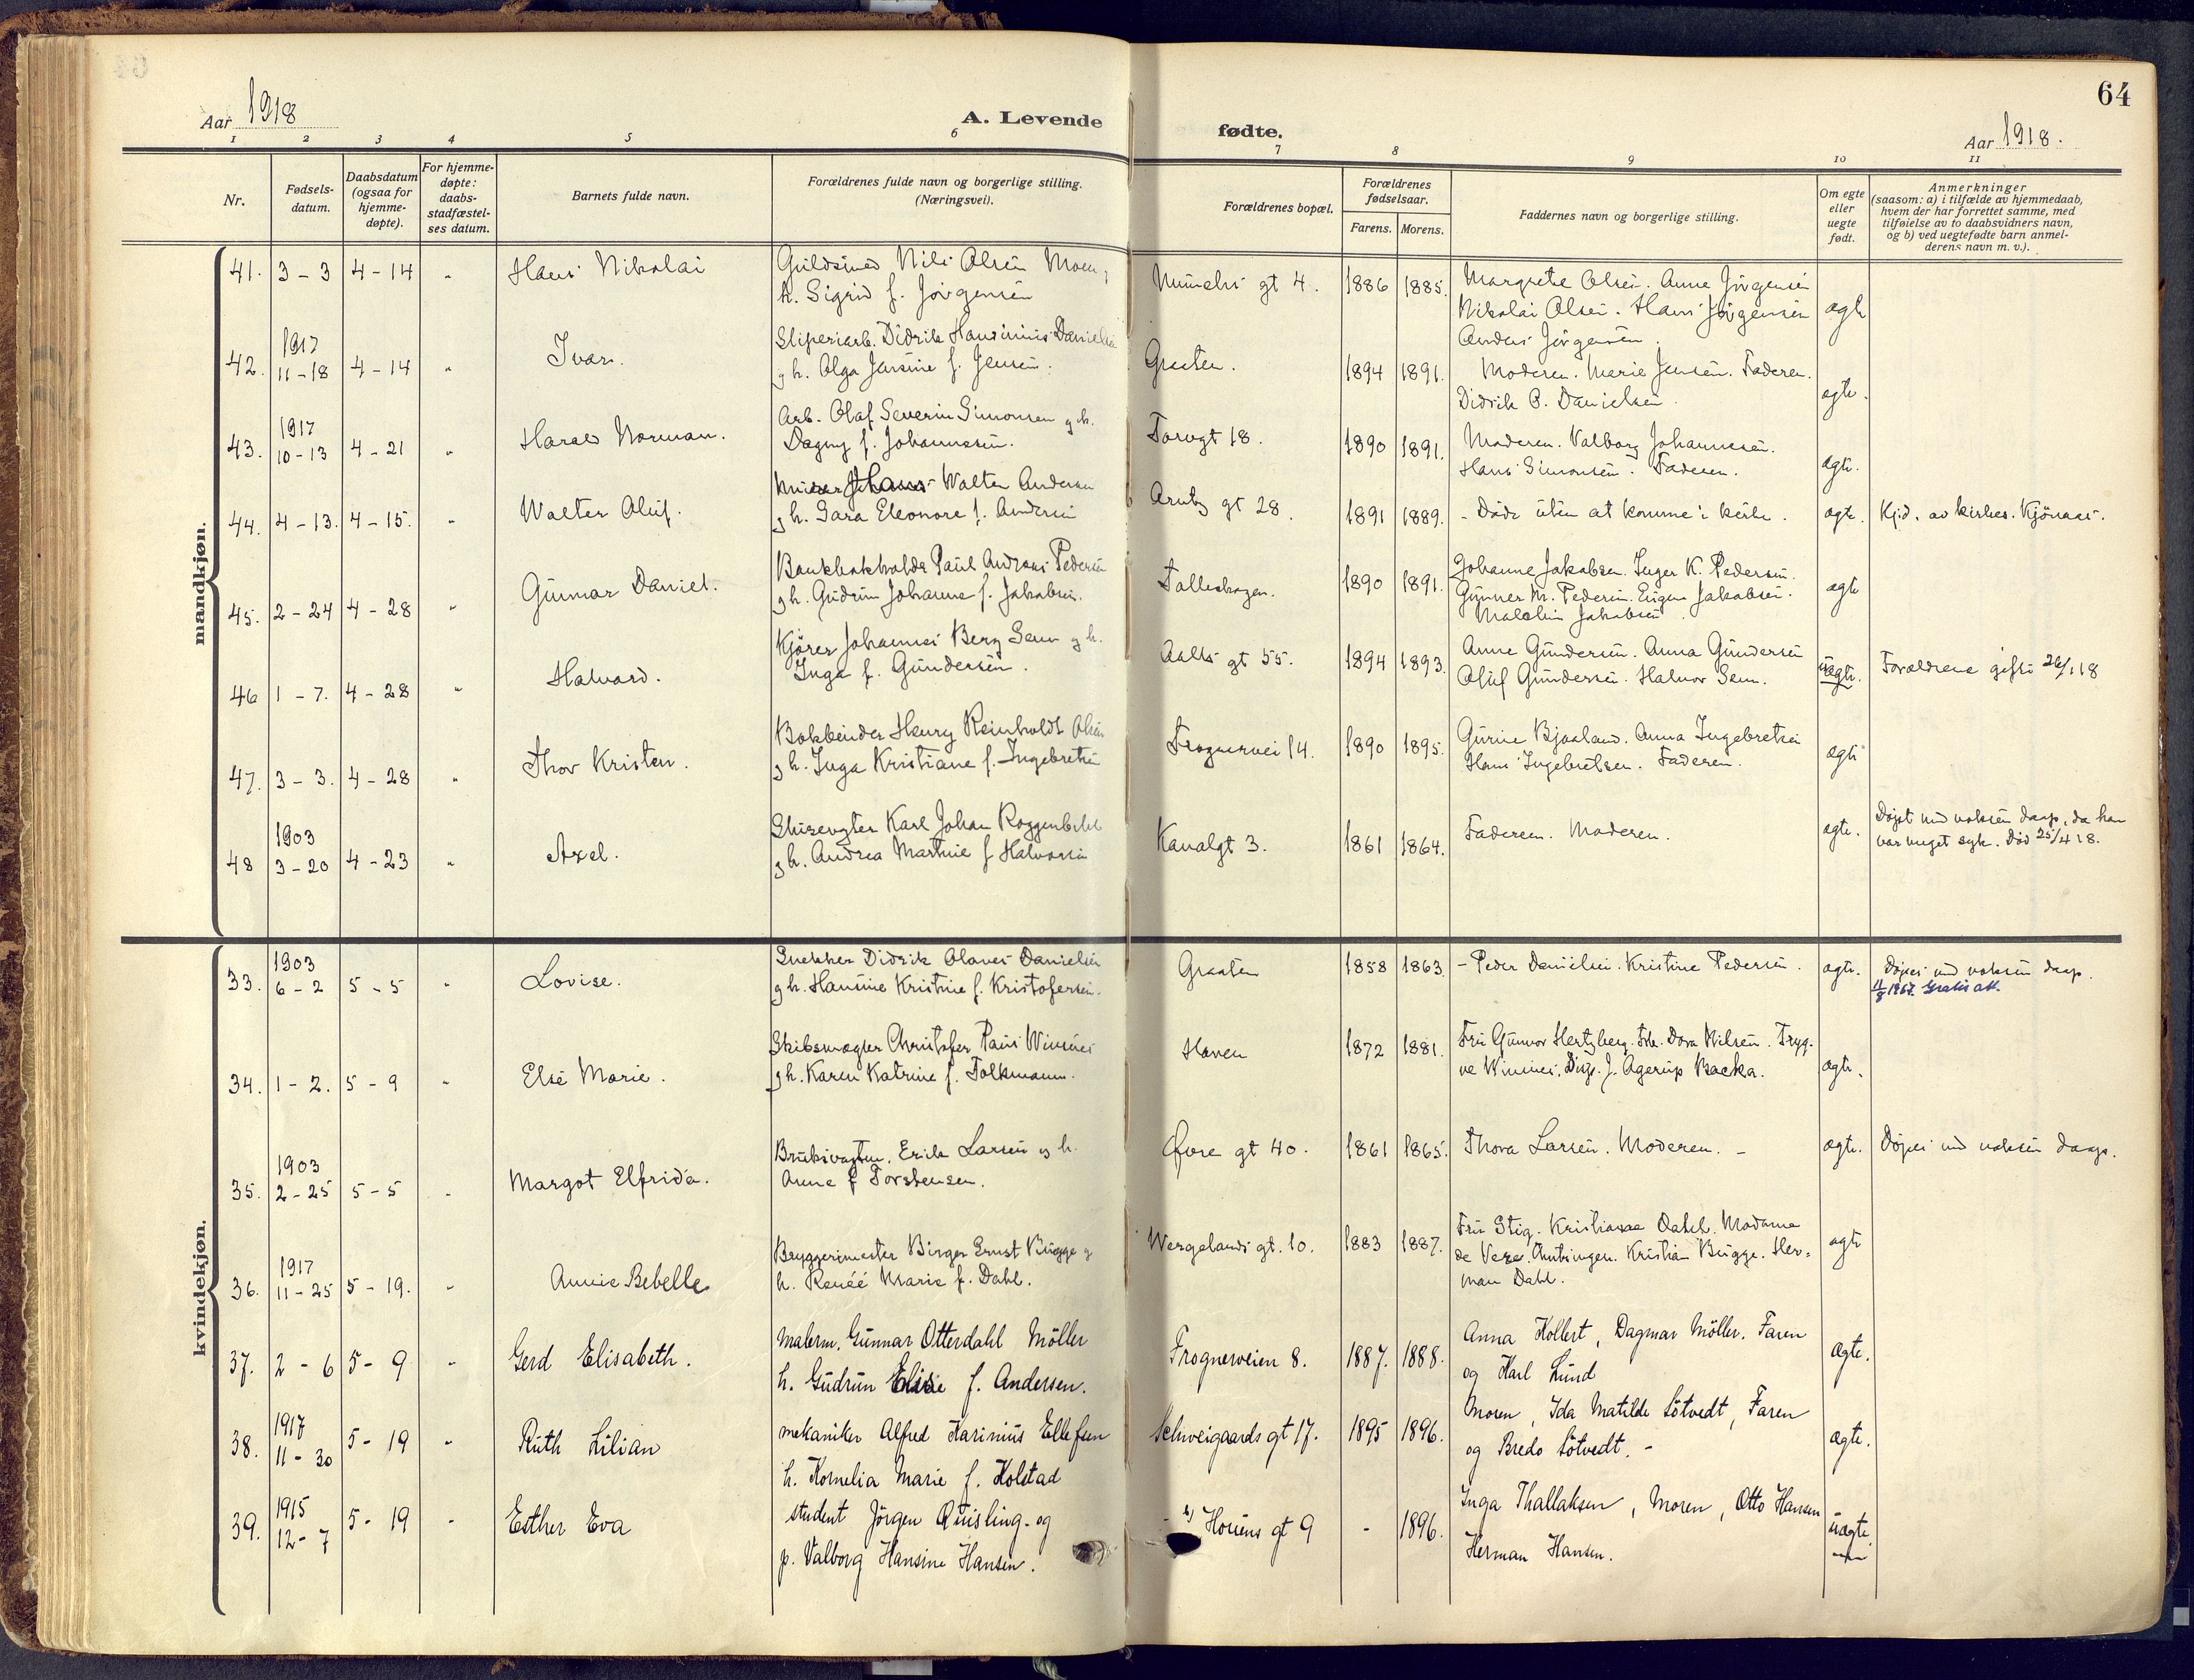 64
Aar 1918
A. Levende
fødte.
Aar 1918.
1 2 3 4 5 6 7 8 9 10 11
Nr.
Fødsels-
datum.
Daabsdatum
(ogsaa for
hjemme-
døpte).
For hjemme-
døpte:
daabs-
stadfæstel-
ses datum.
Barnets fulde navn.
Forældrenes fulde navn og borgerlige stilling.
(Næringsvei).
Forældrenes bopæl.
Forældrenes
fødselsaar.
Farens. Morens.
Faddernes navn og borgerlige stilling.
Om egte
eller
uegte
født.
Anmerkninger
(saasom: a) i tilfælde av hjemmedaab,
hvem der har forrettet samme, med
tilføielse av to daabsvidners navn,
og b) ved uegtefødte barn anmel-
derens navn m. v.).
mandkjøn.
41. 3 - 3 4 - 14 " Hans Nikolai
Guldsmed Nils Olsen Moen,
h. Sigrid f. Jörgensen
gt 4. 1886 1885.
Margrete Olsen. Anne Jörgensen
Nikolai Olsen. Hans Jörgensen
Anders Jörgensen.
ægte
42. 1917
11 - 18 4 - 14 " Ivar.
Sliperiarb. Didrik Hansinius Danielsen
g h. Olga Jensine f. Jensen.
Graaten. 1894 1891.
Moderen. Marie Jensen. Faderen.
Didrik O. Danielsen.
ægte.
43. 1917
10 - 13 4 - 21 " Harald Norman.
Arb. Olaf Severin Simonsen g h.
Dagny f. Johannesen.
Torvgt 18. 1890 1891.
Moderen. Valborg Johannesen.
Hans Simonsen. Faderen.
ægte.
44. 4 - 13. 4 - 15. " Walter Oluf.
Murer Johans Walter Andersen
g h. Sara Eleonore f. Andersen
Arntz gt 28. 1891 1889.
- Døde uten at komme i kirke.
ægte. Kjd. av kirkes. Kjönaas.
45. 2 - 24 4 - 28 " Gunnar Daniel.
Bankbokholder Paul Andreas Pedersen
g h. Gudrun Johanne f. Jakobsen.
Follestragen. 1890 1891.
Johanne Jakobsen. Inger K. Pedersen.
Gunner M. Pedersen. Eugen Jakobsen.
Malchin Jakobsen.
ægte
46 1 - 7. 4 - 28 " Halvard.
Kjörer Johannes Berg Sem g h.
Inga f. Gundersen.
Aalls gt 55. 1894 1893.
Anne Gundersen. Anna Gundersen
Oluf Gundersen. Halvor Sem.
uægte. Forældrene gifte 26/1 18
47. 3 - 3. 4 - 28 " Thor Kristen.
Bokbinder Henry Reinholdt Olsen
g h. Inga Kristiane f. Ingebretsen
Frognervei 14. 1890 1895.
Gurine Bjaaland. Anna Ingebretsen
Hans Ingebretsen. Faderen.
ægte
48 1903
3 - 20 4 - 23 " Axel.
Karl Johan Roggenbihl
g h. Andrea Martine f. Halvorsen
Kanalgt 3. 1861 1864.
Faderen. Moderen.
ægte. Döpt ved voksen daap, da han
var meget syk. Död 25/4 18.
kvindekjøn.
33. 1903
6 - 2 5 - 5 " Lovise.
Snekker Didrik Olaves Danielsen
g h. Hansine Kristine f. Kristofersen.
Graaten 1858 1863.
- Peder Danielsen. Kristine Pedersen.
ægte. Döpes ved voksen daap.
11/8 1967. Gratis att.
34. 1 - 2. 5 - 9 " Else Marie.
Skibsmægler Christofer Paus Winsnes
g h. Karen Katrine f. Folkmann.
Haven 1872 1881.
Fru Gunvor Hertzberg. Frk. Dora Nilsen. Tryg-
ve Winsnes. Disp. J. Agerup Backa.
ægte.
35. 1903
2 - 25 5 - 5 " Margot Elfrida.
Bruksvogten. Erik Larsen g h.
Anne f Torstensen.
Øvre gt 40. 1861 1865.
Thora Larsen. Moderen. -
ægte. Döpes ved voksen daap.
36. 1917
11 - 25 5 - 19. " Annie Bebelle
Bryggerimester Birger Ernst Bugge g
h. Reneé Marie f. Dahl.
Wergelands gt. 10. 1883 1887.
Fru Stig. Kristiansa Dahl. Madame
de Veze. Kristian Bugge. Her-
man Dahl.
ægte
37. 2 - 6 5 - 9 " Gerd Elisabeth.
malerm. Gunnar Otterdahl Möller
h. Gudrun Elise f. Andersen.
Frognerveien 8. 1887. 1888.
Anna Hollert, Dagmar Möller. Faren
og Karl Lund
Ægte.
38. 1917
11 - 30 5 - 19 " Ruth Lilian
mekaniker Alfred Karinius Ellefsen
h. Kornelia Marie f. Kolstad
Schweigaards gt 17. 1895 1896.
Moren, Ida Matilde Sötvedt, Faren
og Bredo Sötvedt. -
ægte.
39. 1915
12 - 7 5 - 19 " Esther Eva
student Jörgen Quisling - og
p. Valborg Hansine Hansen.
- b) Houens gt 9 - 1896.
Inga Thallaksen, Moren, Otto Hansen
Herman Hansen.
uægte